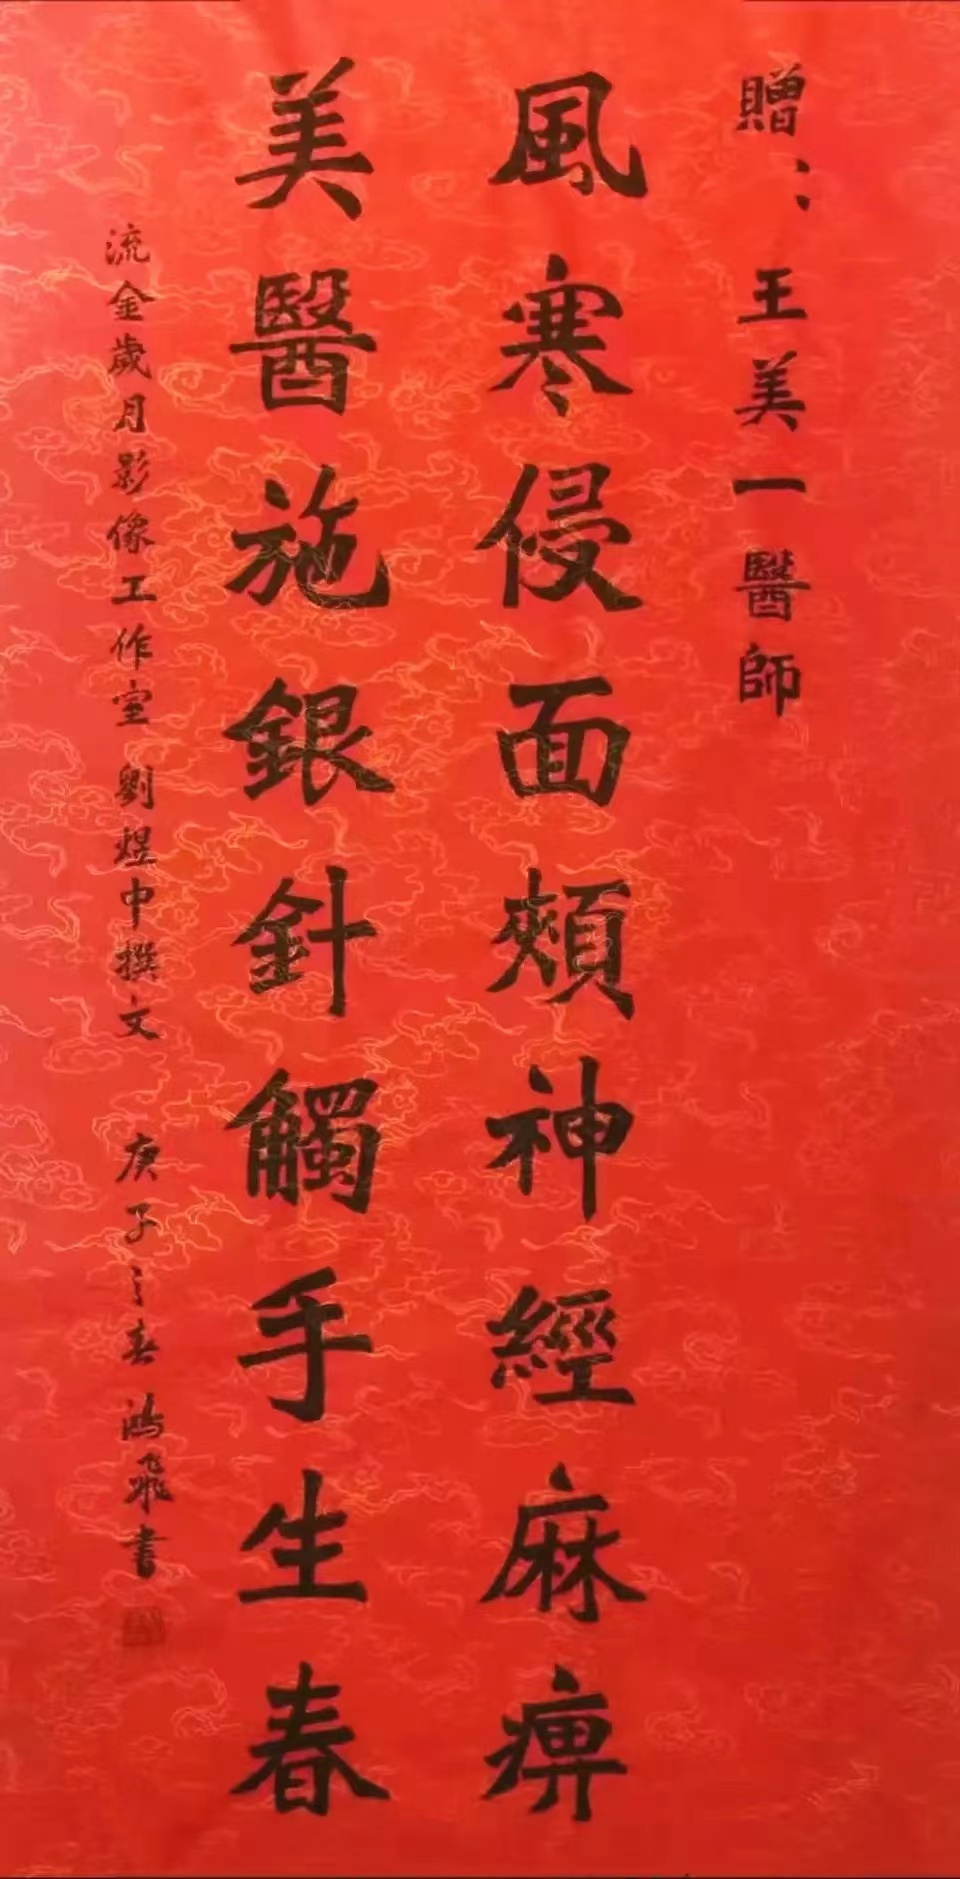 贈：王美一醫師
風寒侵面頰神經麻痹
美醫施銀針觸手生春
流金歲月影像工作室劉煜中撰文 庚子之春鴻飛書